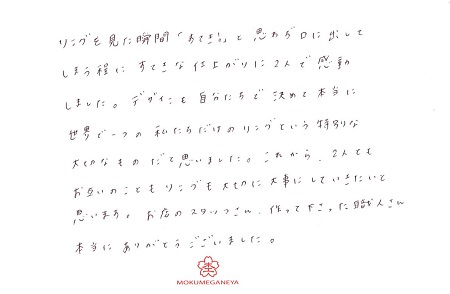 リングを見た瞬間「すてき!」と思わず口に出して
しまう程にすてきな仕上がりに2人で感動
しました。デザインも自分たちで決めて本当に
世界で一つの私たちだけのリングという特別な
大切なものだと思いました。これから、2人でも
お互いのこともリングも大切に大事にしていきたいと
思います。お店のスタッフさん、作って下さった職人さん
本当にありがとうございました。
MOKUMEGANEYA